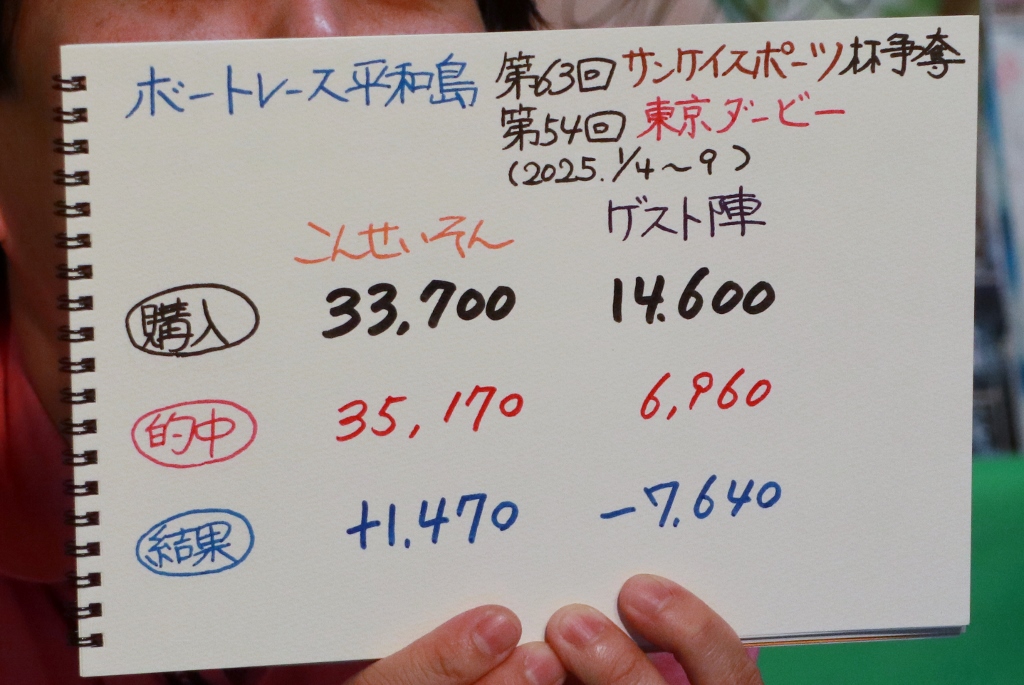 ボートレース平和島 第63回サンケイスポーツ杯争奪
第54回 東京ダービー
(2025.1/4~9)
こんせいそん ゲスト陣
購入 33,700 14.600
的中 35,170 6,960
結果 +1.470 -7.640